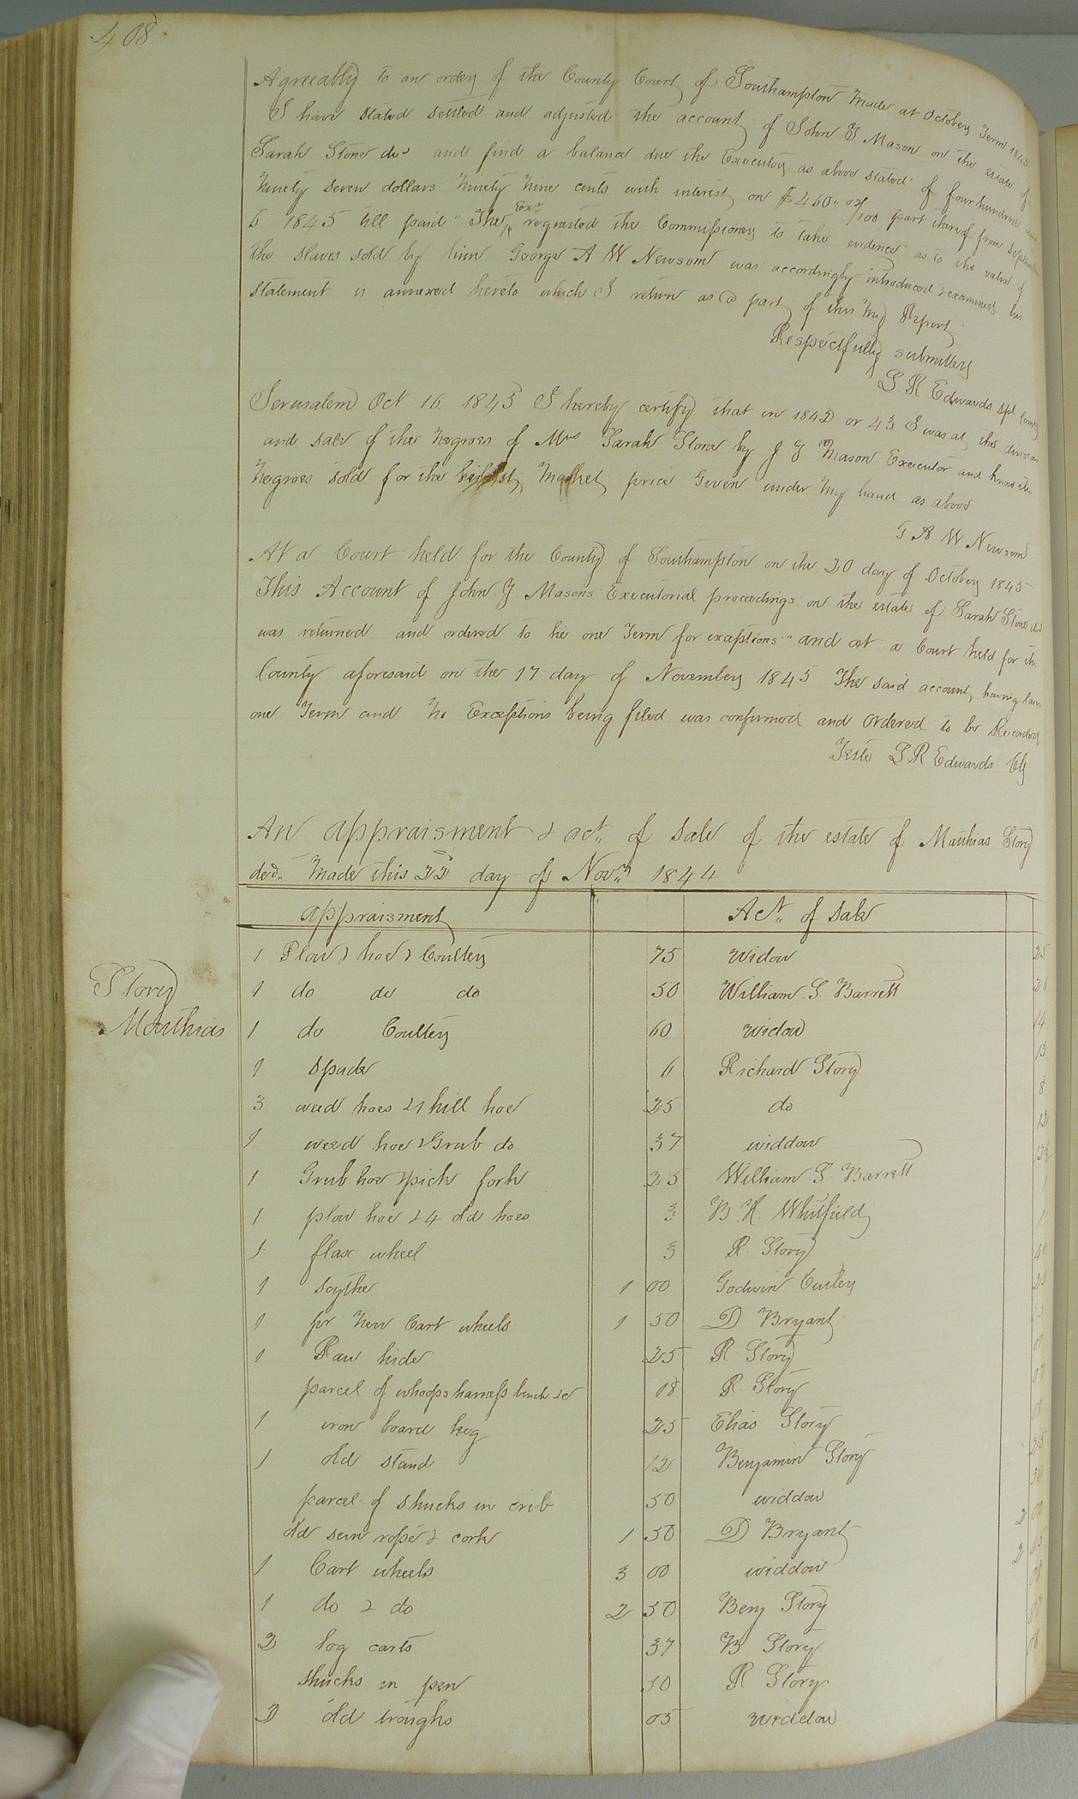 408
Agreeably to an order of the County Court of Southampton Made at October Term 1845
I have stated settled and adjusted the account of John Y Mason on the estate of
Sarah Stone decd and find a balance due the Executor as above stated of four hundred and
Ninety seven dollars Ninety Nine cents with interest on $460 part thereof from September
6 1845 till paid The Exr requested the Commissioner to take evidence as to the value of
the slaves sold by him George A W Newsom was accordingly introduced & examined his
statement is annexed hereto which I return as a part of this My Report
Respectfully submitted
L R Edwards Spl Com
Jerusalem Oct 16 1845 I hereby certify that in 1842 or 43 I was at the division
and sale of the Negroes of Mrs Sarah Stone by J Y Mason Executor and know the
Negroes sold for the highest Market price Given under My hand as above
G A W Newsom
At a Court held for the County of Southampton on the 20 day of October 1845
This Account of John Y Masons Executorial proceedings on the estate of Sarah Stone decd
was returned and ordered to lie one Term for exceptions and at a Court held for the
County aforesaid on the 17 day of November 1845 The said account having laid
one Term and No Exceptions being filed was confirmed and ordered to be Recorded
Teste L R Edwards Clk
An appraisment & act. of sale of the estate of Matthias Story
decd. Made this 22 day of Novr. 1844
appraisment Act. of sale
Story
Matthias
1 Plow & hoe & Coulter 75 Widow 25
1 do do do 50 William G. Barrett
1 do Coulter 60 widow 14
1 spade 6 Richard Story 13
3 weed hoes & 1 hill hoe 25 do 8
1 weed hoe & Grub do 37 widdow
1 Grub hoe & pich fork 25 William G. Barrett
1 plow hoe & 4 old hoes 3 B. H. Whitfield
1 flax wheel 5 R. Story
1 Scythe 1 00 Godwin Cutler
1 pr New Cart wheels 1 50 D Bryant
1 Raw hide 25 R Story
parcel of whoops harness bench &c 18 R Story
1 iron board keg 25 Elias Story
1 old stand 12 Benjamin Story
parcel of shucks in crib 50 widdow
old sein rope & cork 1 50 D Bryant
1 Cart wheels 3 00 widdow
1 do & do 2 50 Benj Story
2 log carts 37 B Story
shucks in pen 50 R Story
2 old troughs 05 widdow